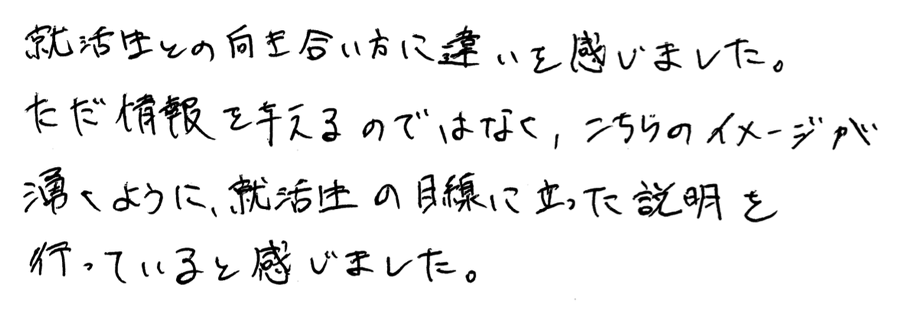 就活生との向き合い方に違いを感じました。
ただ情報を与えるのではなく、こちらのイメージが
湧くように、就活生の目線に立った説明を
行っていると感じました。